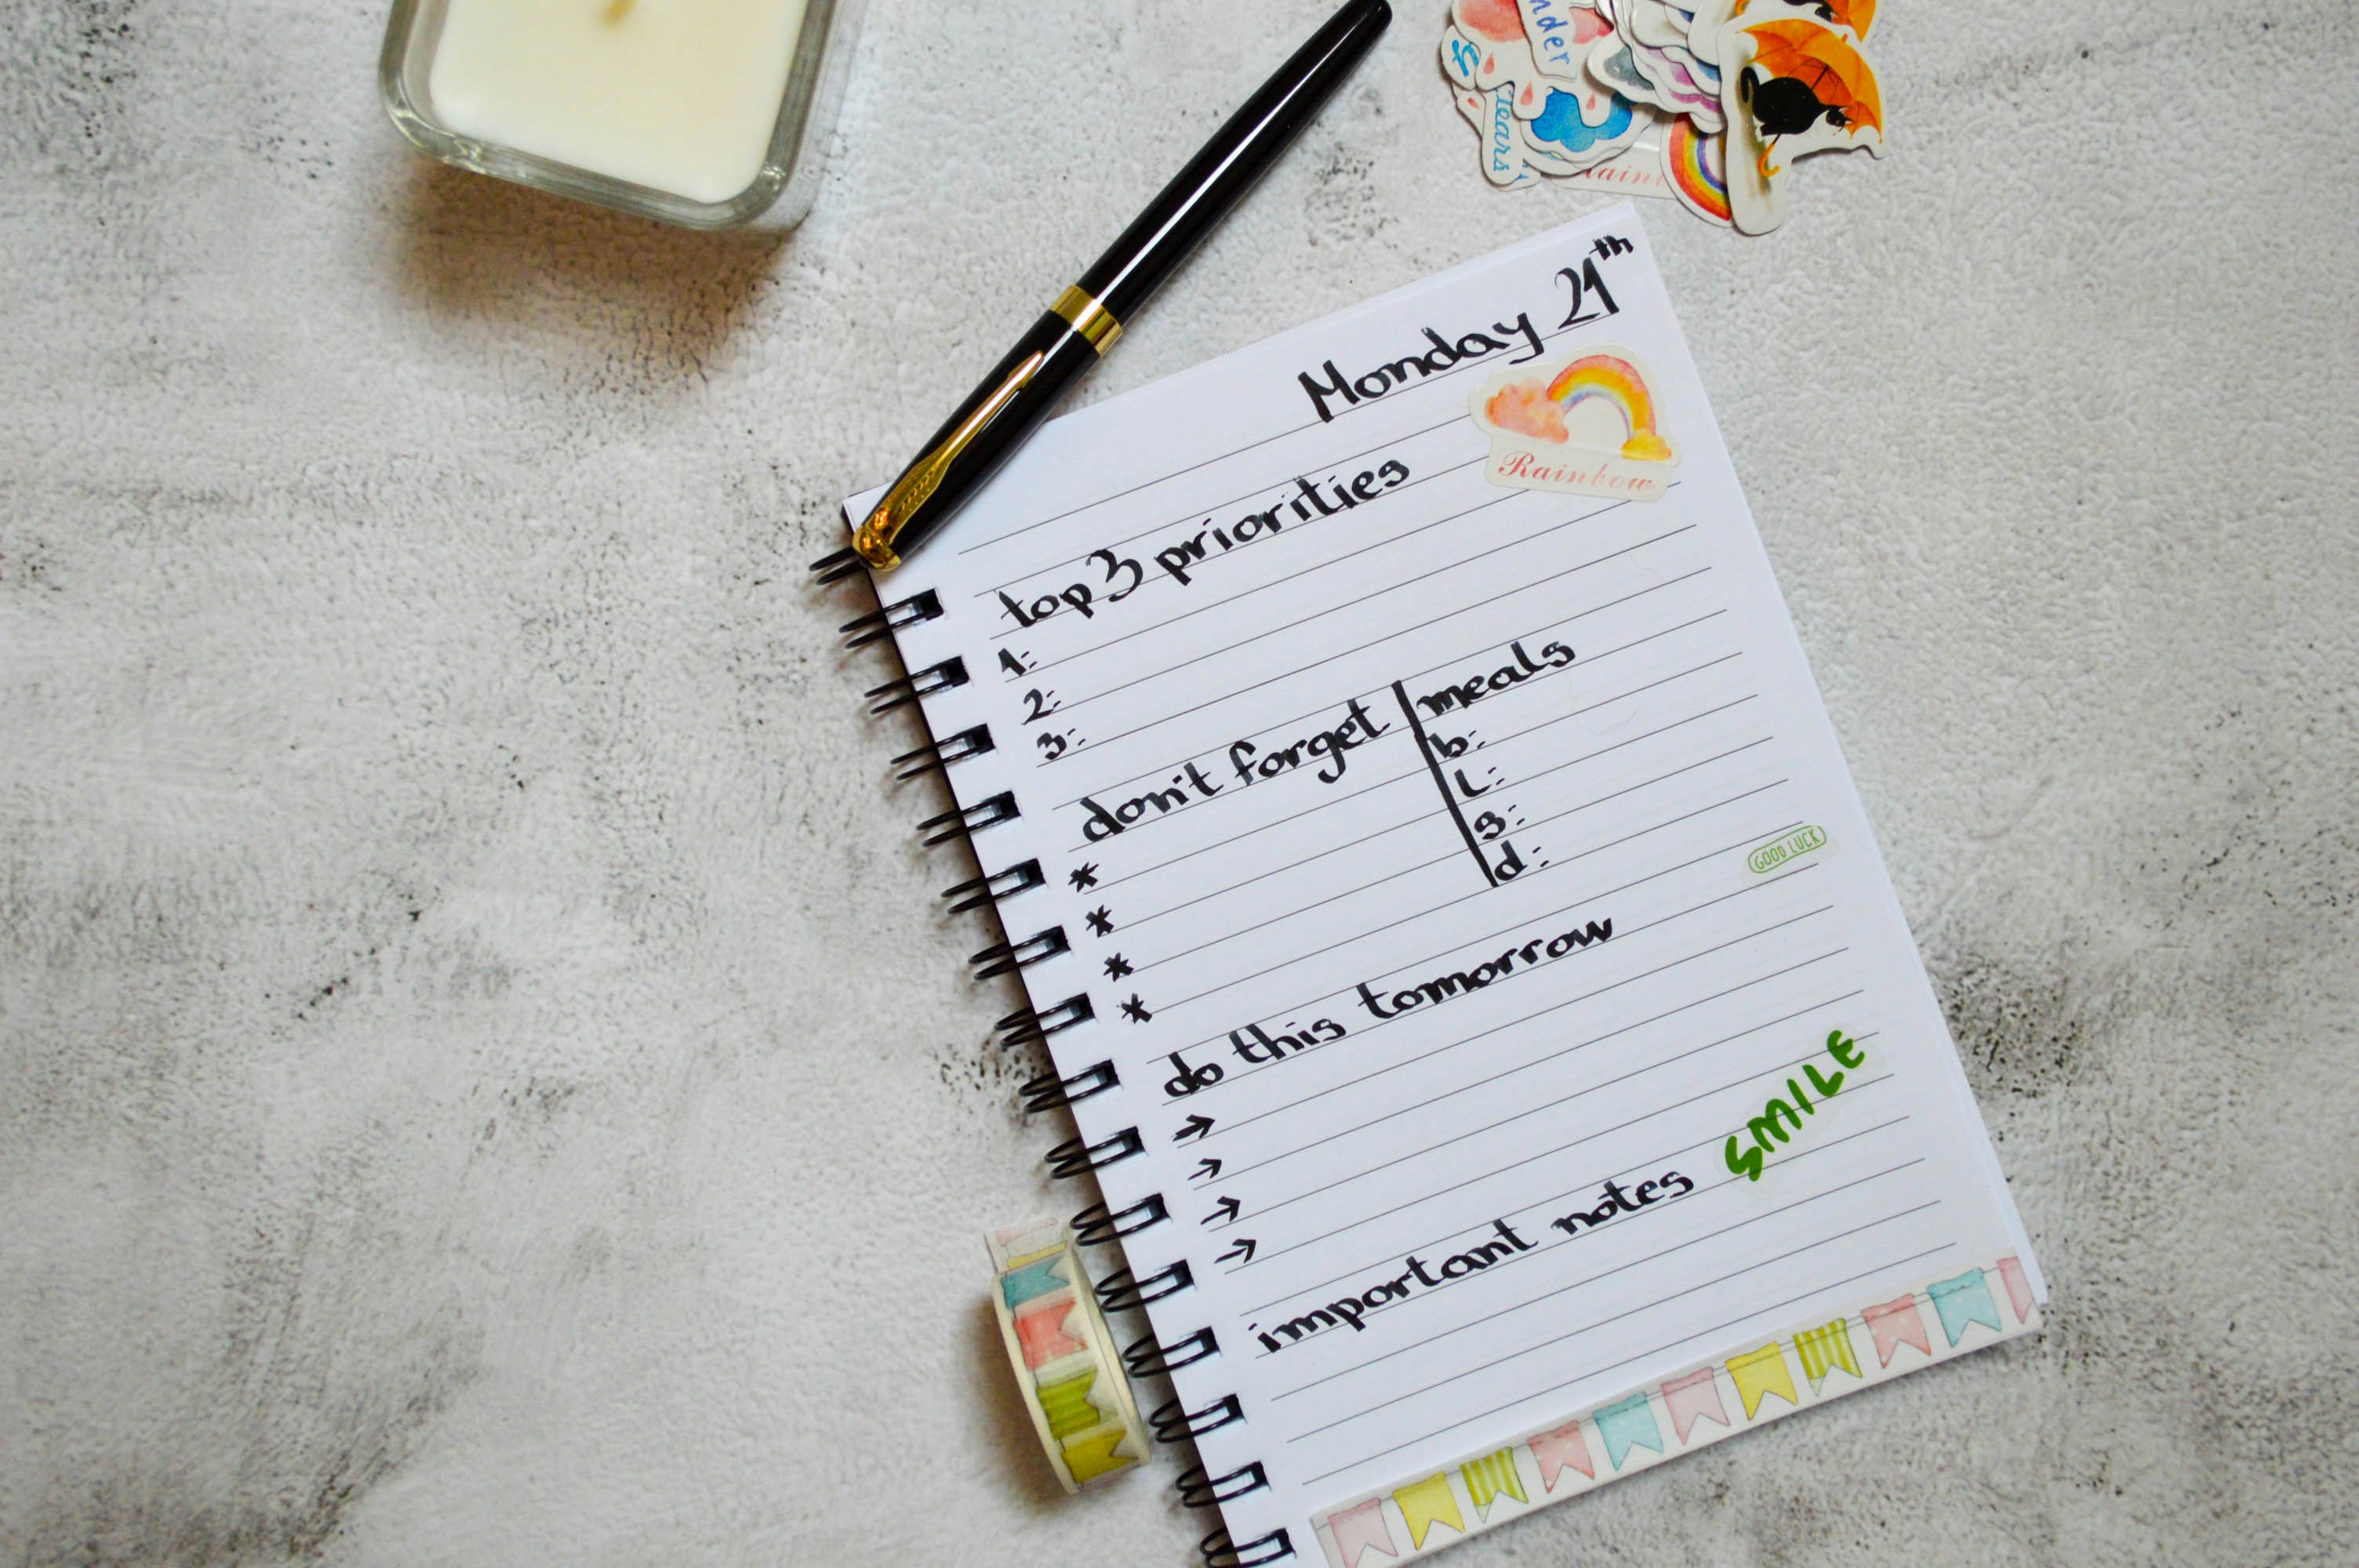 nder
tears
Monday 21th
Rainbow
top 3 priorities
1:
2:
3:
don't forget
*
*
*
*
meals
b:
L:
s:
d:
GOOD LUCK
do this tomorrow
→
→
→
→
important notes
SMILE